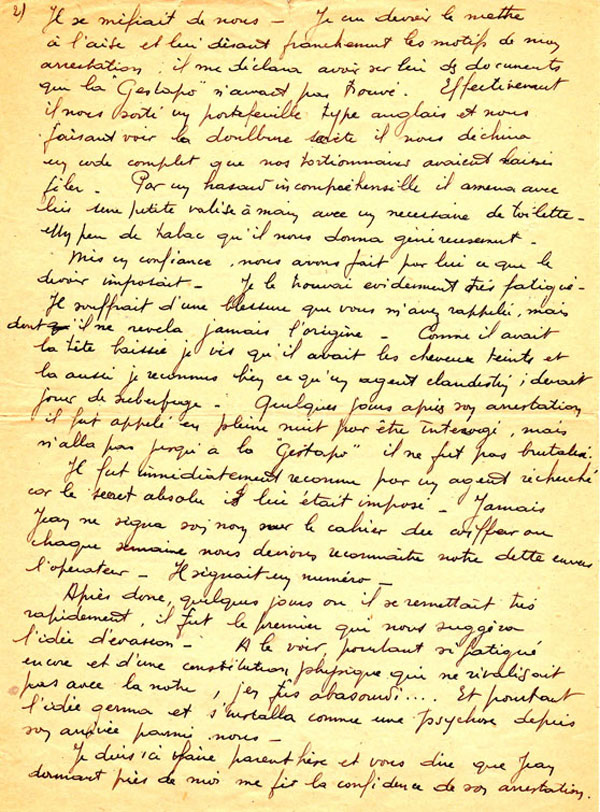 2) Il se méfiait de nous – Je crus devoir le mettre
à l'aise et lui disant franchement les motifs de mon
arrestation, il me déclara avoir sur lui des documents
que la "Gestapo" n'avait pas trouvé. Effectivement
il nous sorti un portefeuille type anglais et nous
faisant voir la doublure secrète il nous déchira
un code complet que nos tortionnaires avaient laissé
filer – Par un hasard incompréhensible il amena avec
lui une petite valise à main avec un necessaire de toilette –
Un peu de tabac qu'il nous donna généreusement –
Mis en confiance, nous avons fait pour lui ce que le
devoir imposait – Je le trouvai evidemment très fatigué –
Il souffrait d'une blessure que vous m'avez rappelée, mais
dont il ne revela jamais l'origine – Comme il avait
la tête baissée je vis qu'il avait les cheveux teints et
la aussi je reconnus bien ce qu'un agent clandestin devait
jouer de subterfuge – Quelques jours après son arrestation
il fut appelé en pleine nuit pour être interrogé, mais
n'alla pas jusqu'a la "Gestapo" il ne fut pas brutalisé.
Il fut immédiatement reconnu par un agent recherché
car le secret absolu lui était imposé – Jamais
Jean ne signa son nom sur le cahier du coiffeur ou
chaque semaine nous devions reconnaître notre dette envers
l'operateur – Il signait un numéro –
Après donc, quelques jours ou il se remettait très
rapidement, il fut le premier qui nous suggéra
l'idée d'évasion – A le voir, pourtant si fatigué
encore et d'une constitution physique qui ne rivalisait
pas avec la notre, j'en fus abasourdi.... Et pourtant
l'idée germa et s'installa comme une psychose depuis
son arrivée parmi nous –
Je dois ici faire parenthèse et vous dire que Jean
dormant près de moi me fit la confidence de son arrestation.